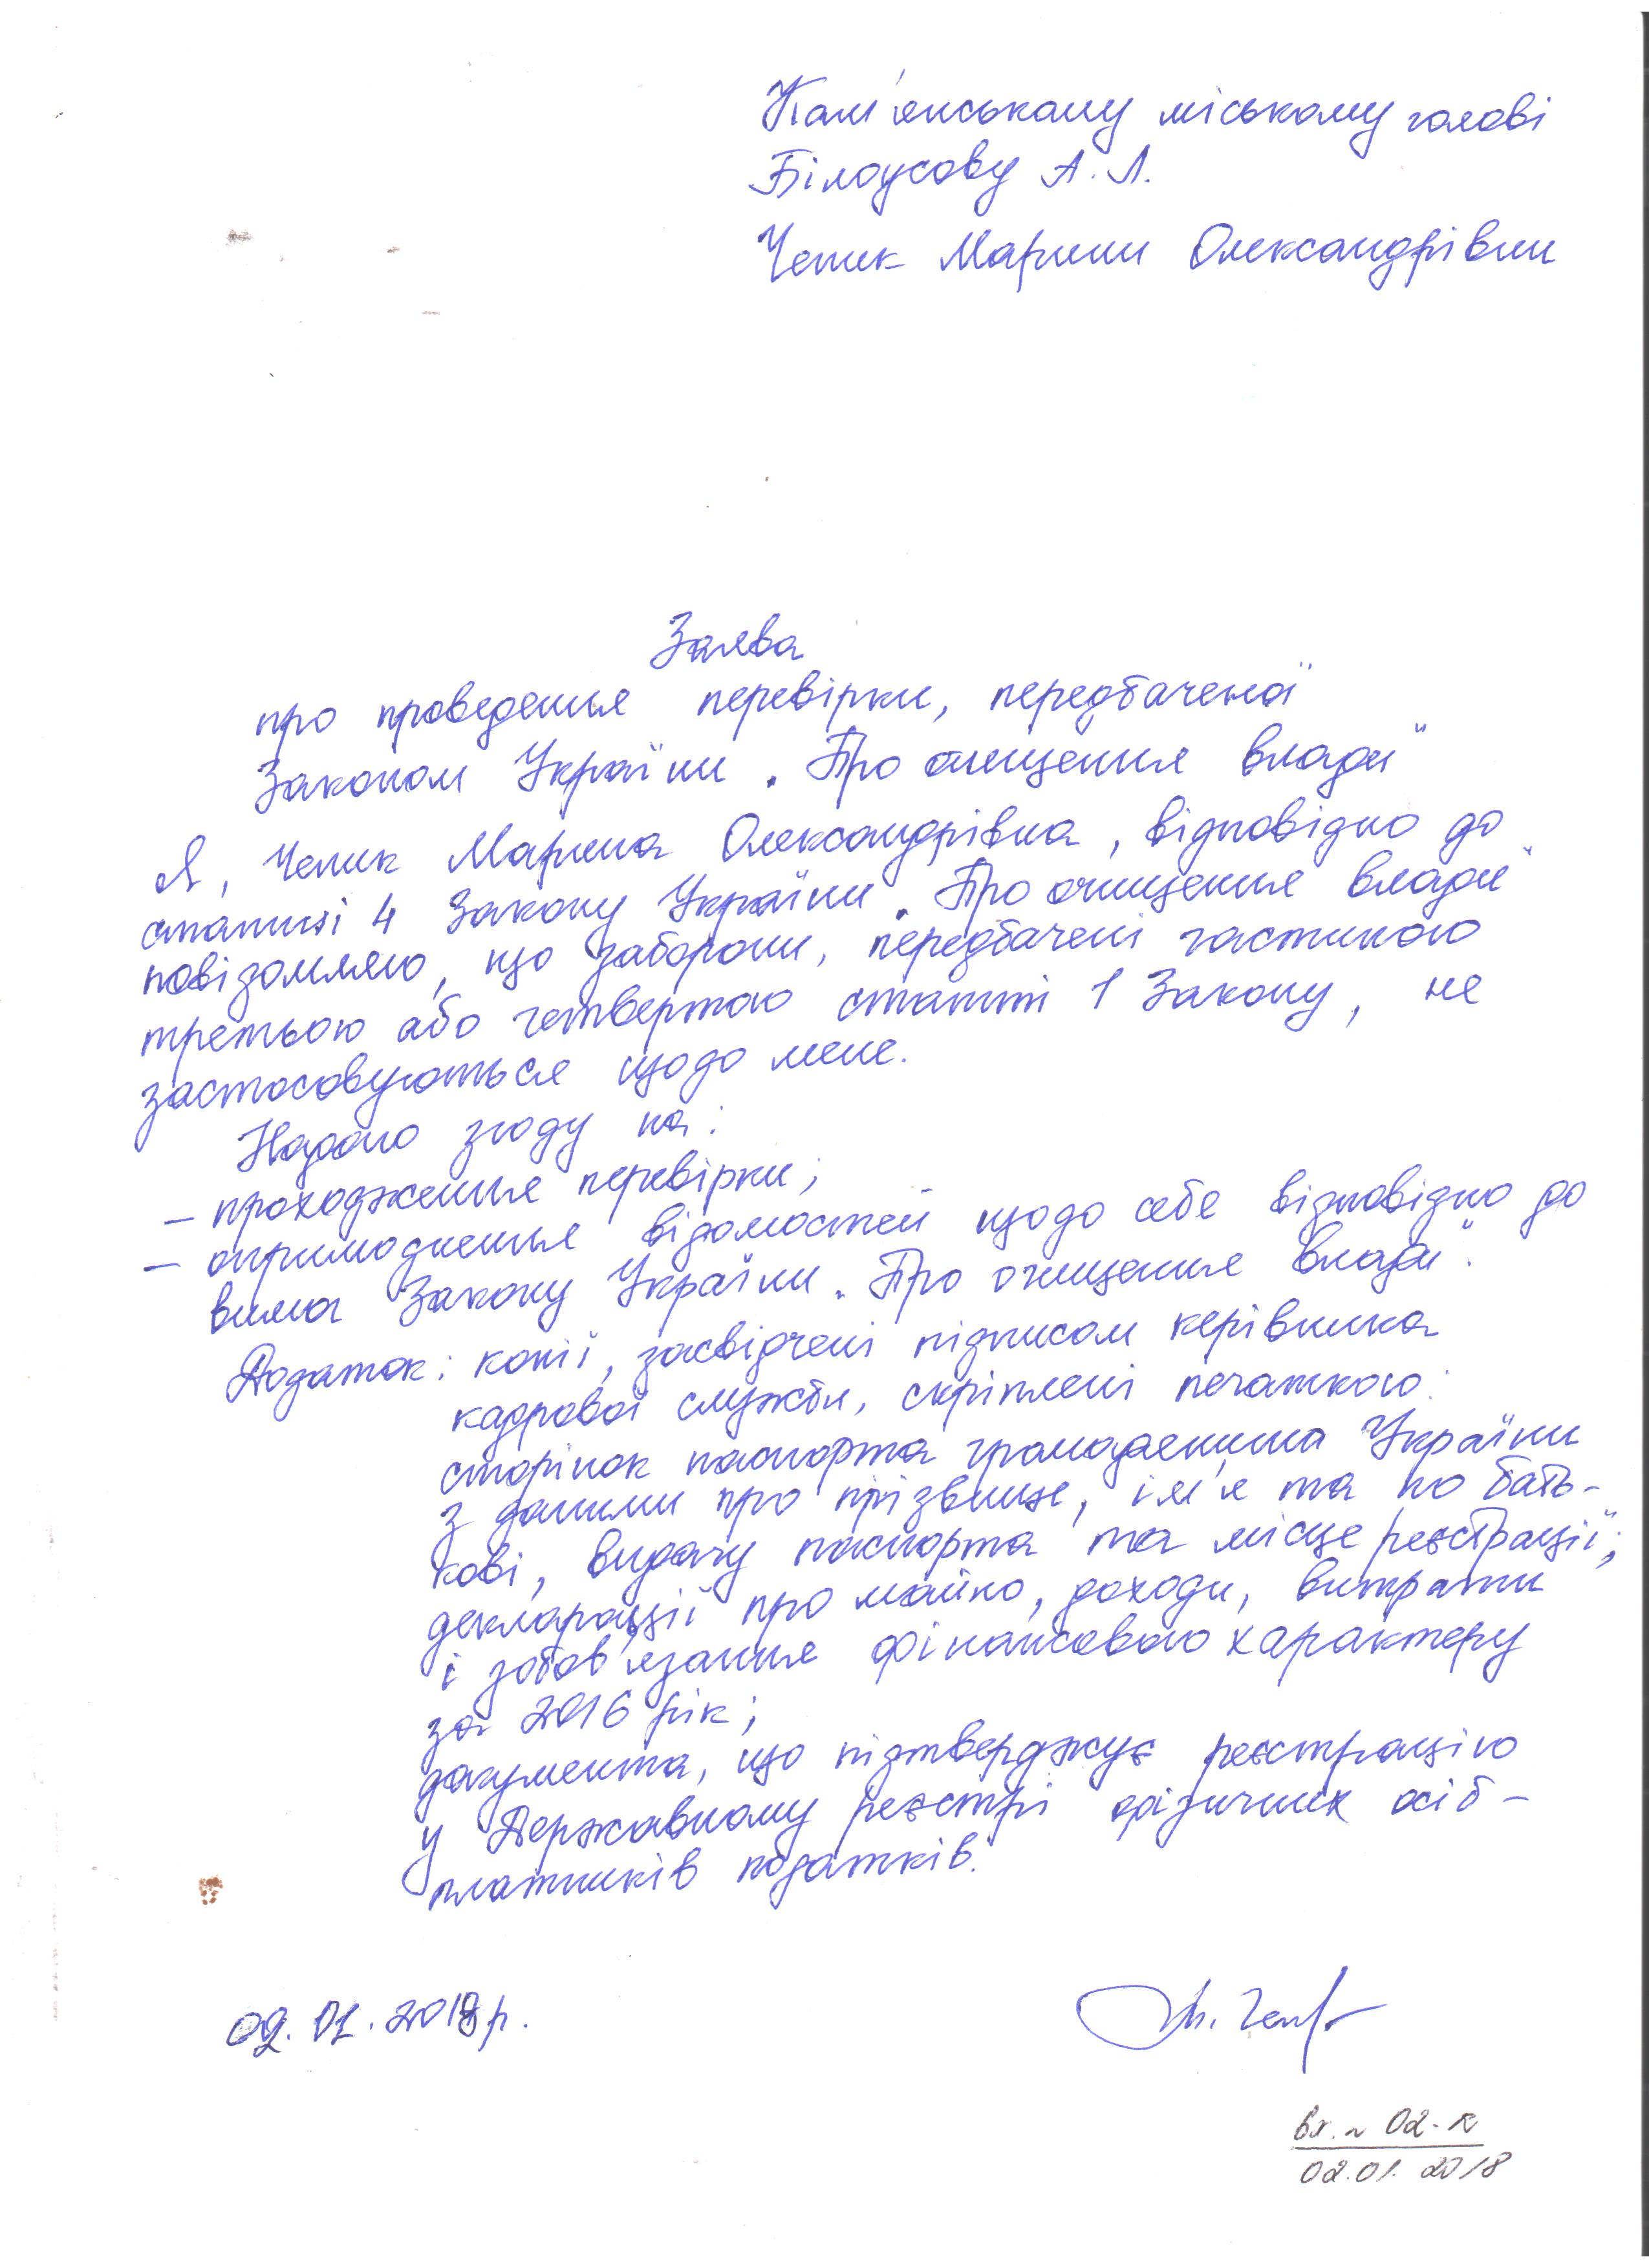 Кам'янському міському голові
Білоусову А. Л.
Чепик Марини Олександрівни
Заява
про проведення перевірки, передбаченої
Законом України „Про очищення влади"
Я, Чепик Марина Олександрівна, відповідно до
статті 4 Закону України „Про очищення влади"
повідомляю, що заборони, передбачені частиною
третьою або четвертою статті 1 Закону, не
застосовуються щодо мене.
Надаю згоду на:
– проходження перевірки;
– оприлюднення відомостей щодо себе відповідно до
вимог Закону України „Про очищення влади".
Додаток: копії, засвідчені підписом керівника
кадрової служби, скріплені печаткою:
сторінок паспорта громадянина України
з даними про прізвище, ім'я та по бать-
кові, видачу паспорта та місце реєстрації;
декларації про майно, доходи, витрати
і зобов'язання фінансового характеру
за 2016 рік;
документа, що підтверджує реєстрацію
у Державному реєстрі фізичних осіб –
платників податків.
02.01.2018 р.
вх. № 02-к
02.01.2018